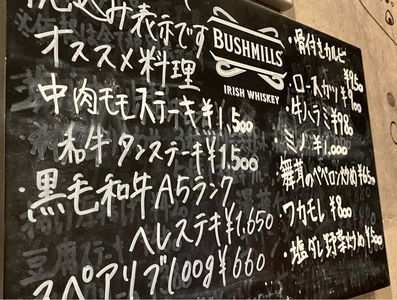 込み表示です
オススメ料理
中肉モモステーキ¥1,500
和牛タンステーキ¥1,500
・黒毛和牛A5ランク
ヘレステキ¥1,650
スペアリブ100g¥660
BUSHMILLS
IRISH WHISKEY
・骨付きカルビ
¥950
・ロースカツ
・牛ハラミ¥980
・ミノ¥1,000
・舞茸のペペロン炒め
・ワカモレ¥800
・塩ダレ野菜炒め¥500